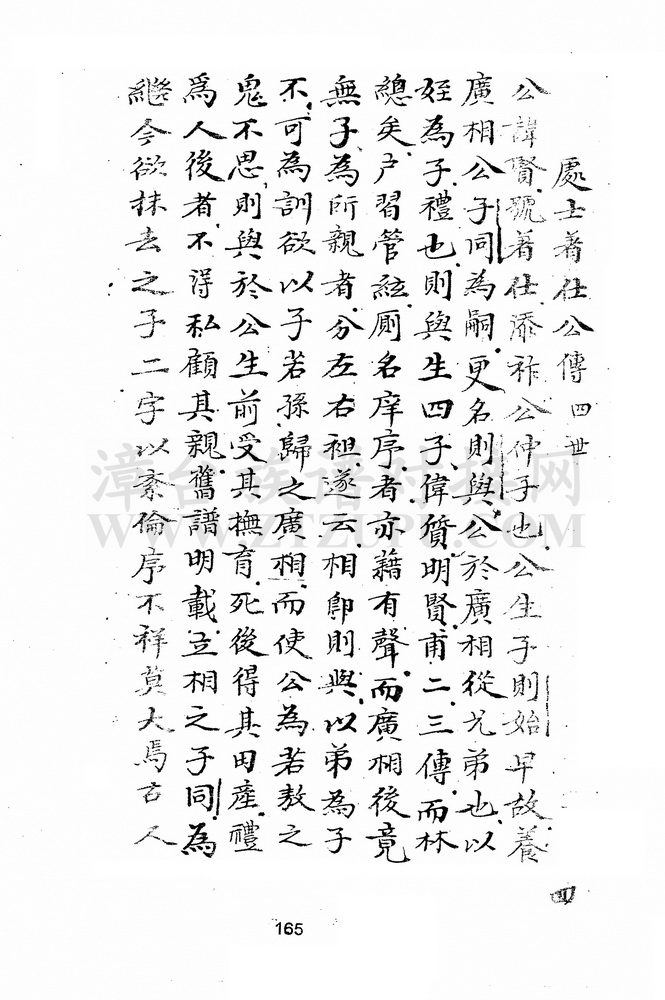 處士著仕公傳 四世
公諱賢號著仕添祚公仲子也公生子則始早故養
廣相公子同為嗣更名則與公於廣相從兄弟也以
姪為子禮也則與生四子偉質明賢甫二三傳而林
總矣戶習管絃厠名庠序者亦藉有聲而廣相後竟
無子為所親者分左右袒遂云相卽則與以弟為子
不可為訓欲以子若孫歸之廣相而使公為若敖之
鬼不思則與於公生前受其撫育死後得其田產禮
為人後者不得私顧其親舊譜明載立相之子同為
繼今欲抹去之子二字以紊倫序不祥莫大焉古人
四
165
漳台族谱对接网
WWW.ZTZUPU.COM